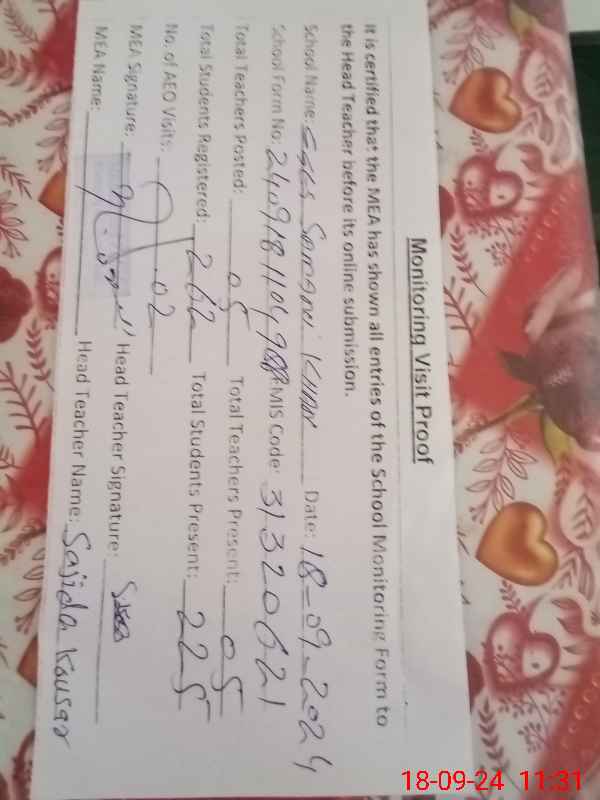 Monitoring Visit Proof
It is certified that the MEA has shown all entries of the School Monitoring Form to
the Head Teacher before its online submission.
School Name: GGES Date: 18-09-2024
School Form No: EMIS Code: 31320621
Total Teachers Posted: 05 Total Teachers Present: 05
Total Students Registered: 262 Total Students Present: 225
No. of AEO Visits: 02
MEA Signature: Head Teacher Signature:
MEA Name: Head Teacher Name: Sajida Kousar
18-09-24 11:31